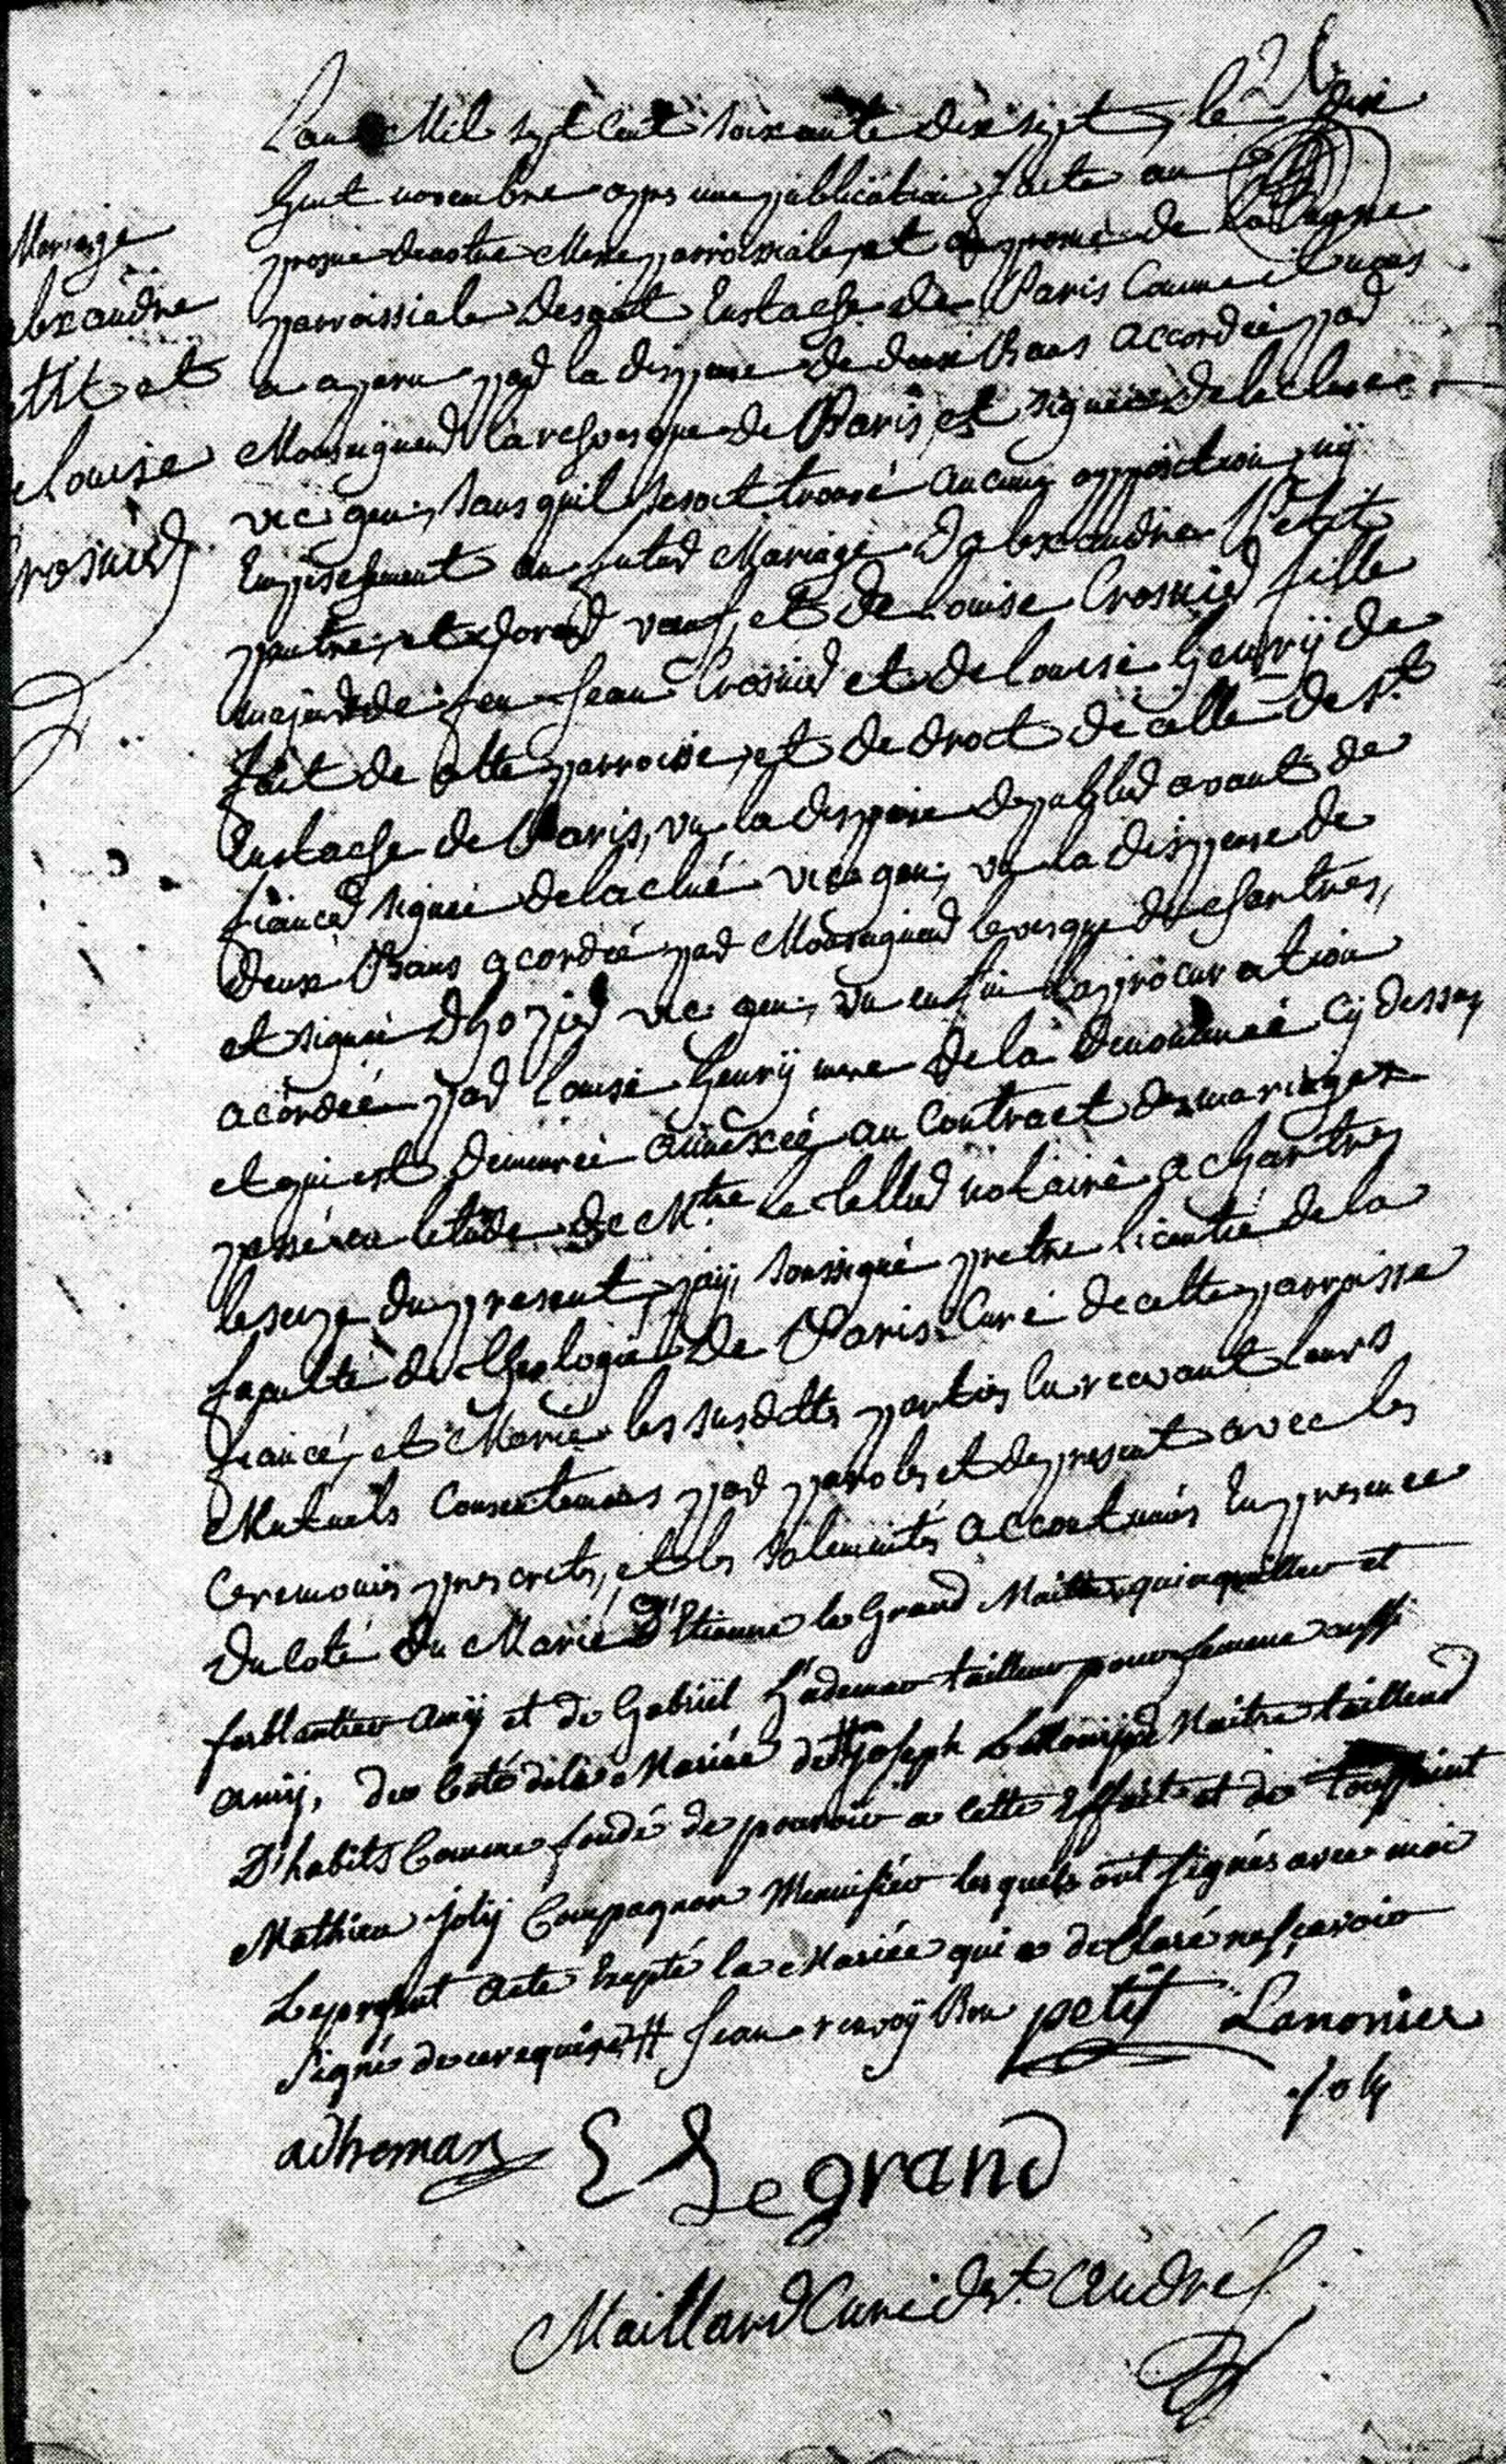 26
Lan Mil sept cent soixante dix sept, le dix
huit novembre apres une publication faite au
prosne de notre Messe parroissiale, et au prosne de la Messe
parroissiale de saint Eustache de Paris comme il nous
a aparu par la dispense de deux Bans accordée par
Monseigneur l'archevesque de Paris, et signée de la
vic gen, sans quil se soit trouvé aucune opposition, ny
Empeschement au futur Mariage D'alexandre Petit
peintre, et doreur veuf, et de Louise Crosnier fille
majeure de feu Jean Crosnier et de louise henry de
fait de cette parroisse, et de droit de celle de St
Eustache de Paris, vu la dispense depublier avant de
fiancer signée delaclué vica gen, vu la dispense de
deux Bans acordée par Monseigneur levesque de chartres,
et signée Dhozier vic gen, vu enfin la procuration
acordée par louise henry mere de la denommée cy dessus,
et qui est demeurée annexée au contract de mariage
passé en letude de Me le tellier notaire a chartres
le seize du present, jay, soussigné pretre licentié de la
faculté de theologie de Paris Curé de cette parroisse
fiancé, et Marié les susdittes parties en recevant leurs
Mutuels consentemens par paroles et de present avec les
ceremonies prescrites, et les solemnités accoutumées En presence
du coté du Marié D'Etienne le Grand Maitre quinquillier et
ferblantier amy et de Gabriel hademar tailleur pour femme aussi
amy, du Coté de la Mariée de Joseph Maitre tailleur
D'habits Comme fondé de pouvoir a cette Effet et de Toussaint
Mathieu joly Compagnon Menuisier lesquels ont signés avec moi
Le present acte Excepté la Mariée qui a declaré ne sçavoir
signé de ce requise # Jean renvoy Bon petit Lamonier
joly
adhemar E Legrand
Maillard Curé de St André
Mariage
alexandre
etit et
Louise
Crosnier